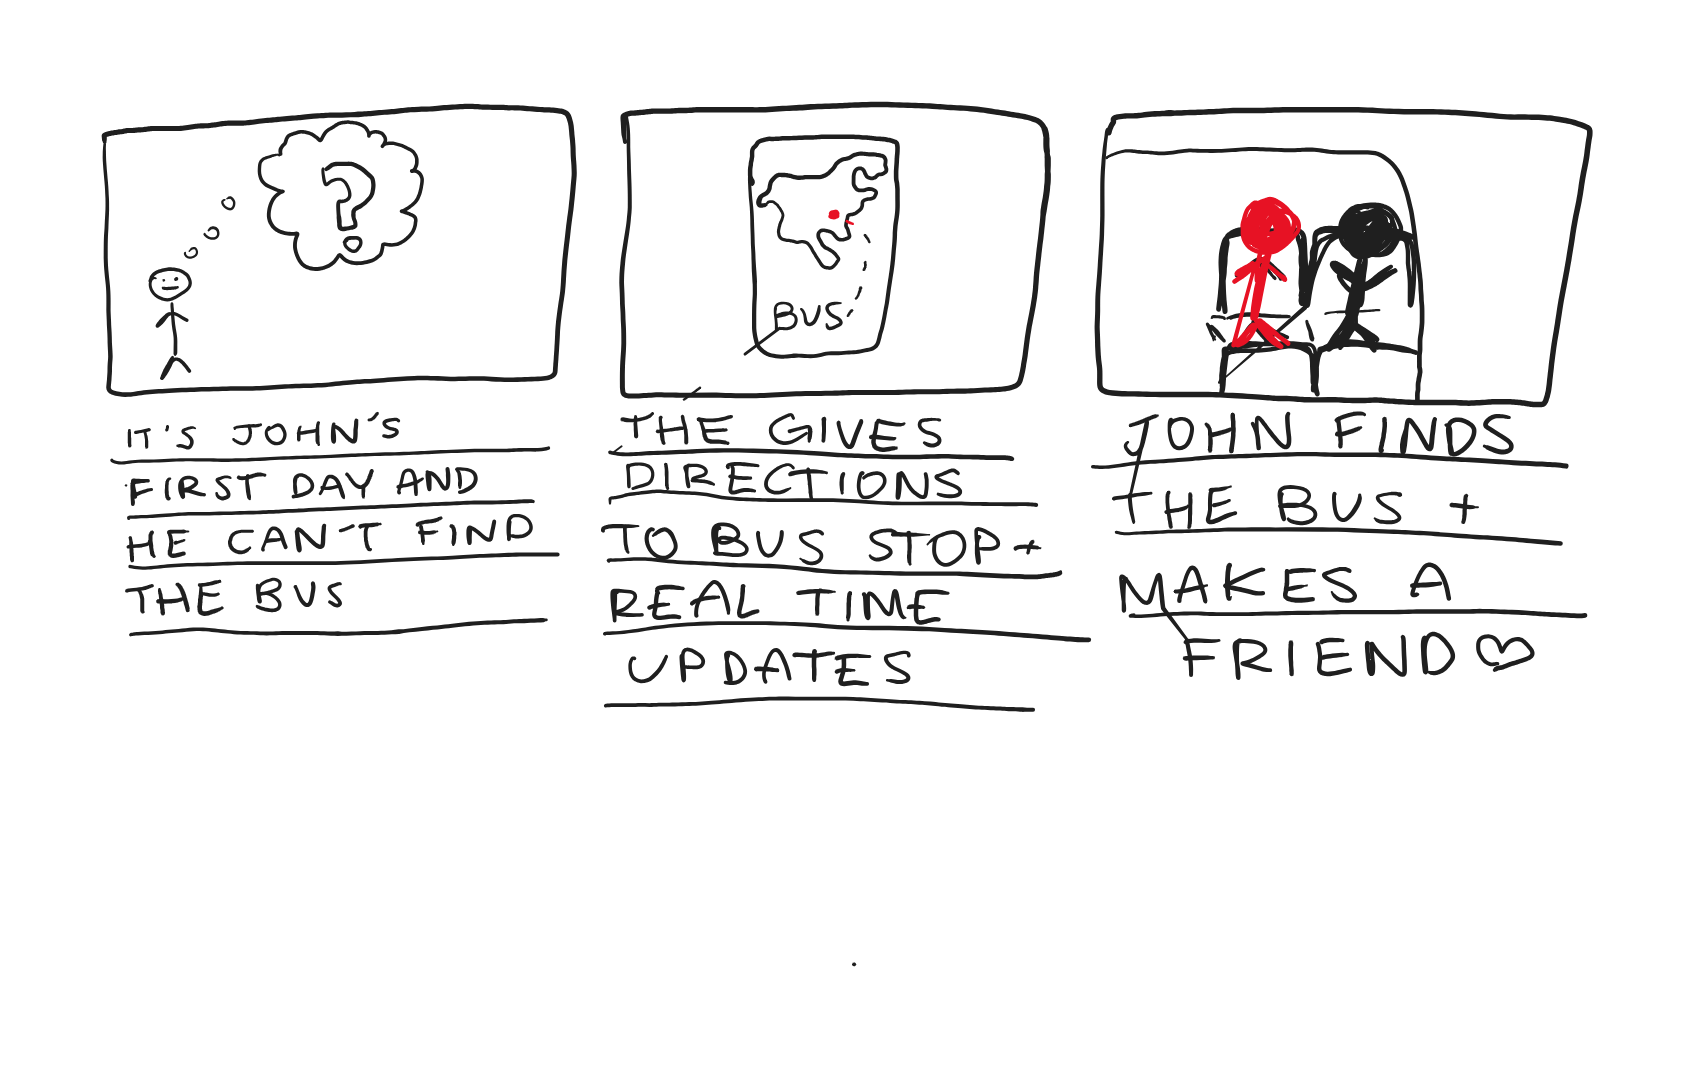 ?
BUS
IT'S JOHN'S
FIRST DAY AND
HE CAN'T FIND
THE BUS
THE GIVES
DIRECTIONS
TO BUS STOP +
REAL TIME
UPDATES
JOHN FINDS
THE BUS +
MAKES A
FRIEND ♡